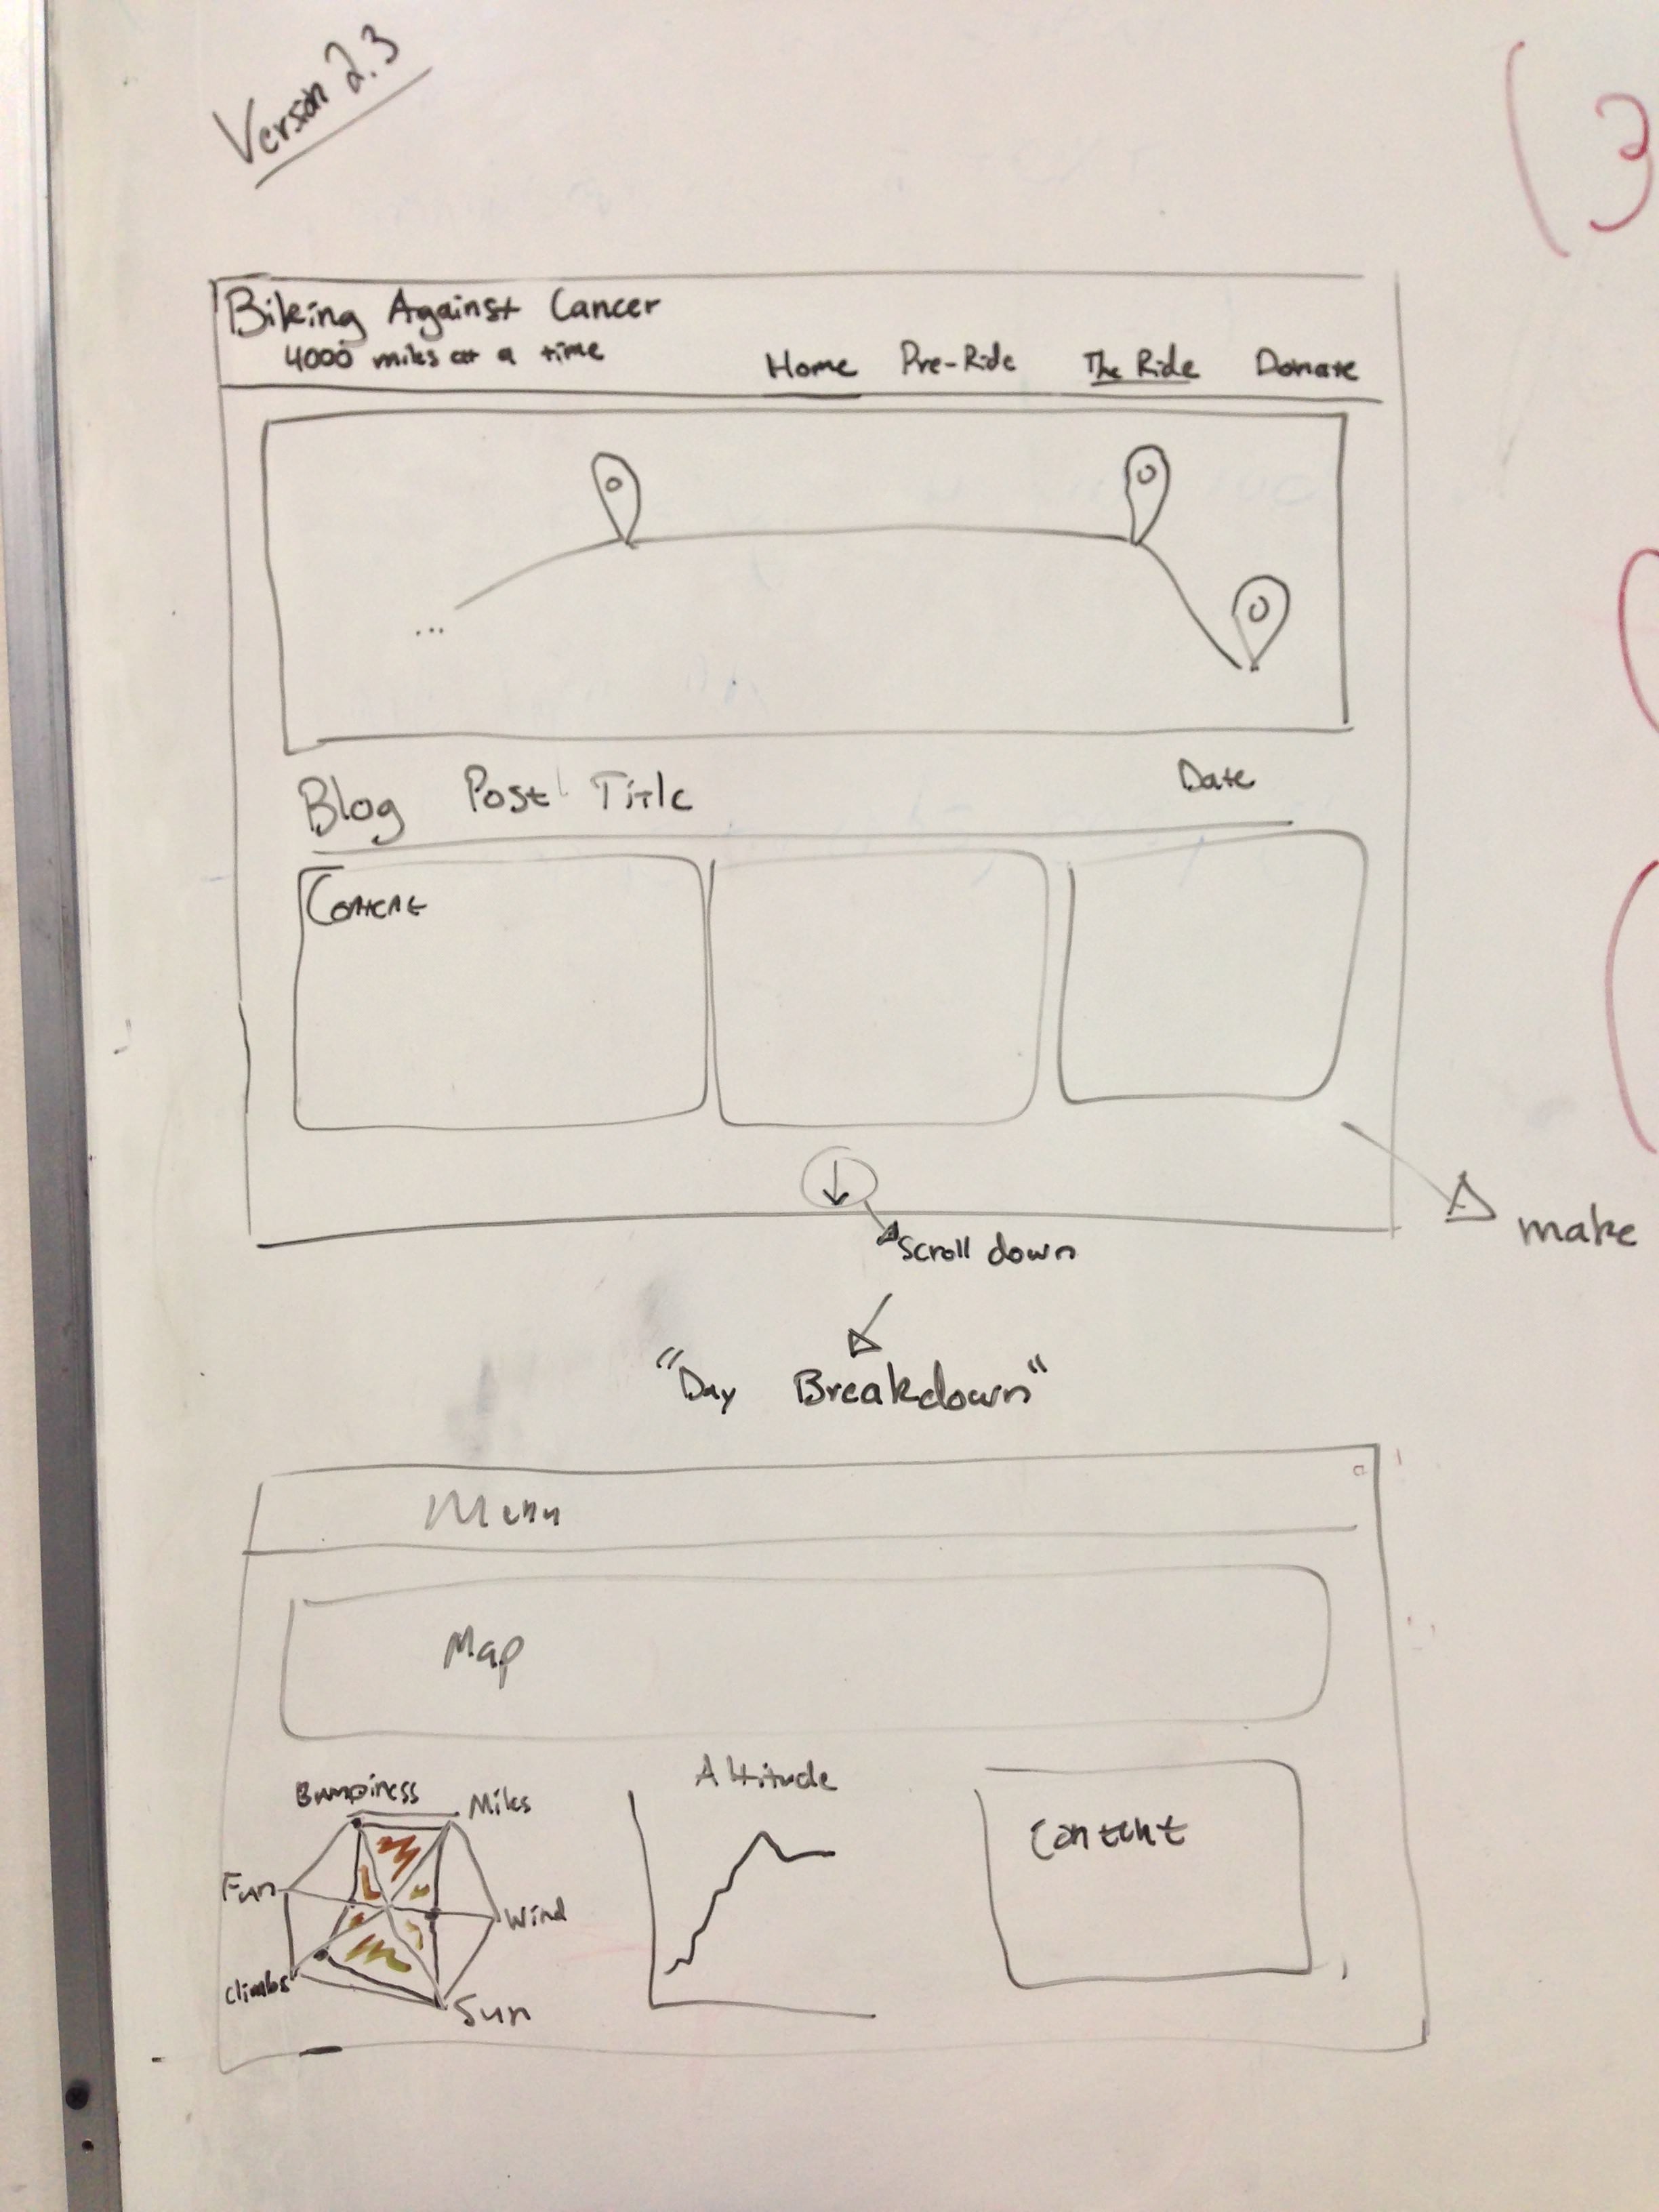 Version 2.3
(3
Biking Against Cancer
4000 miles at a time
Home Pre-Ride The Ride Donate
...
Blog Post Title Date
Content
make
Scroll down
"Day Breakdown"
Menu
Map
Bumpiness Miles
Fun Wind
Climbs Sun
Altitude
Content